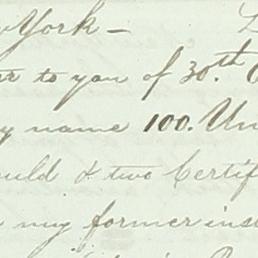 York —
to you of 30.th
name 100. Un
ould & two Certif
my former ins